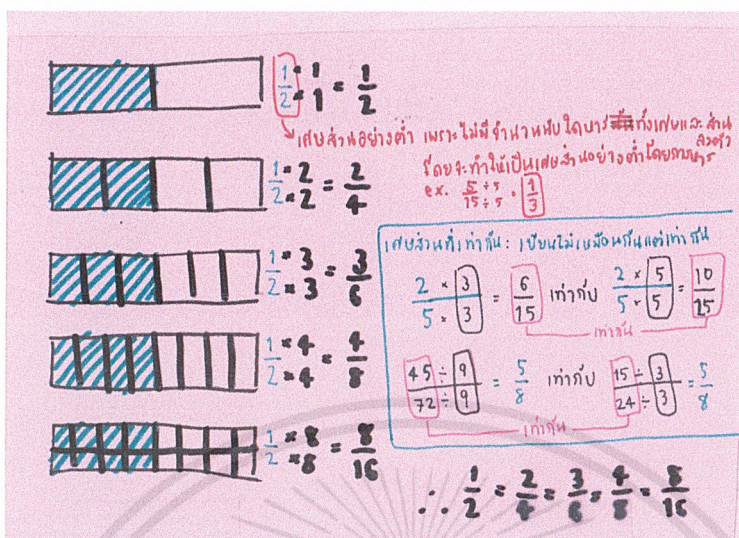 1/2 × 1/1 = 1/2
เศษส่วนอย่างต่ำ เพราะไม่มีจำนวนนับใดหารทั้งเศษและส่วนลงตัว
โดยจะทำให้เป็นเศษส่วนอย่างต่ำโดยการหาร
ex. 5 ÷ 5 / 15 ÷ 5 = 1/3
1 × 2 / 2 × 2 = 2/4
1 × 3 / 2 × 3 = 3/6
1 × 4 / 2 × 4 = 4/8
1 × 8 / 2 × 8 = 8/16
เศษส่วนที่เท่ากัน: เขียนไม่เหมือนกันแต่เท่ากัน
2 × 3 / 5 × 3 = 6/15 เท่ากับ 2 × 5 / 5 × 5 = 10/25
เท่ากัน
45 ÷ 9 / 72 ÷ 9 = 5/8 เท่ากับ 15 ÷ 3 / 24 ÷ 3 = 5/8
เท่ากัน
∴ 1/2 = 2/4 = 3/6 = 4/8 = 8/16